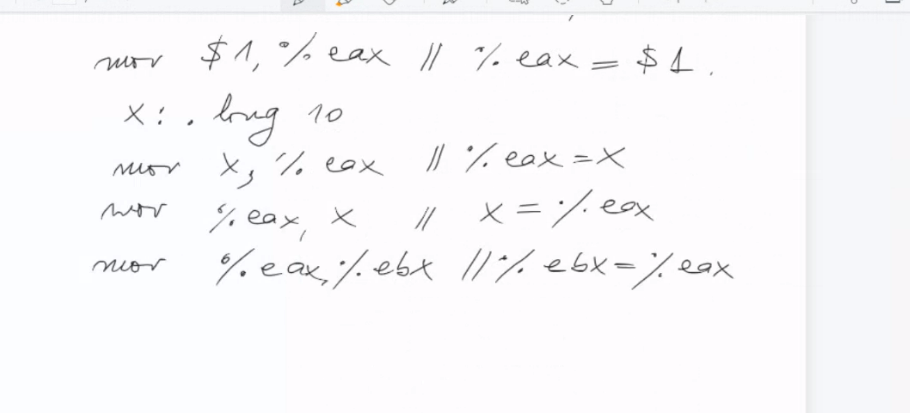 mov $1, %eax // %eax = $1.
x: .long 10
mov x, %eax // %eax = x
mov %eax, x // x = %eax
mov %eax, %ebx // %ebx = %eax